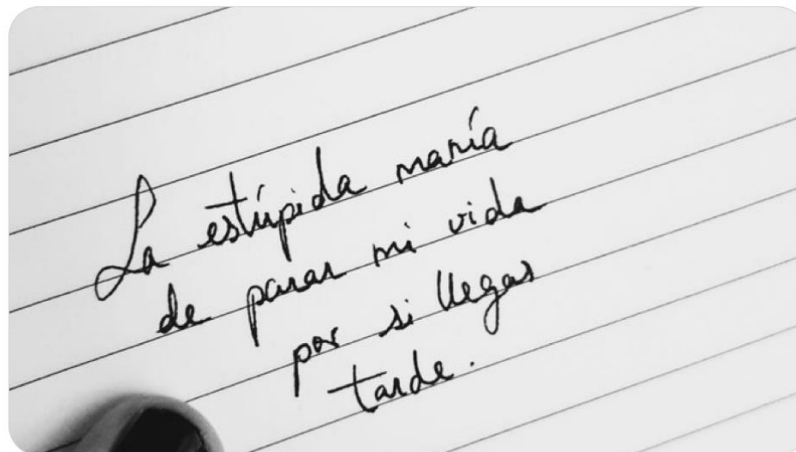 La estúpida manía
de parar mi vida
por si llegas
tarde.